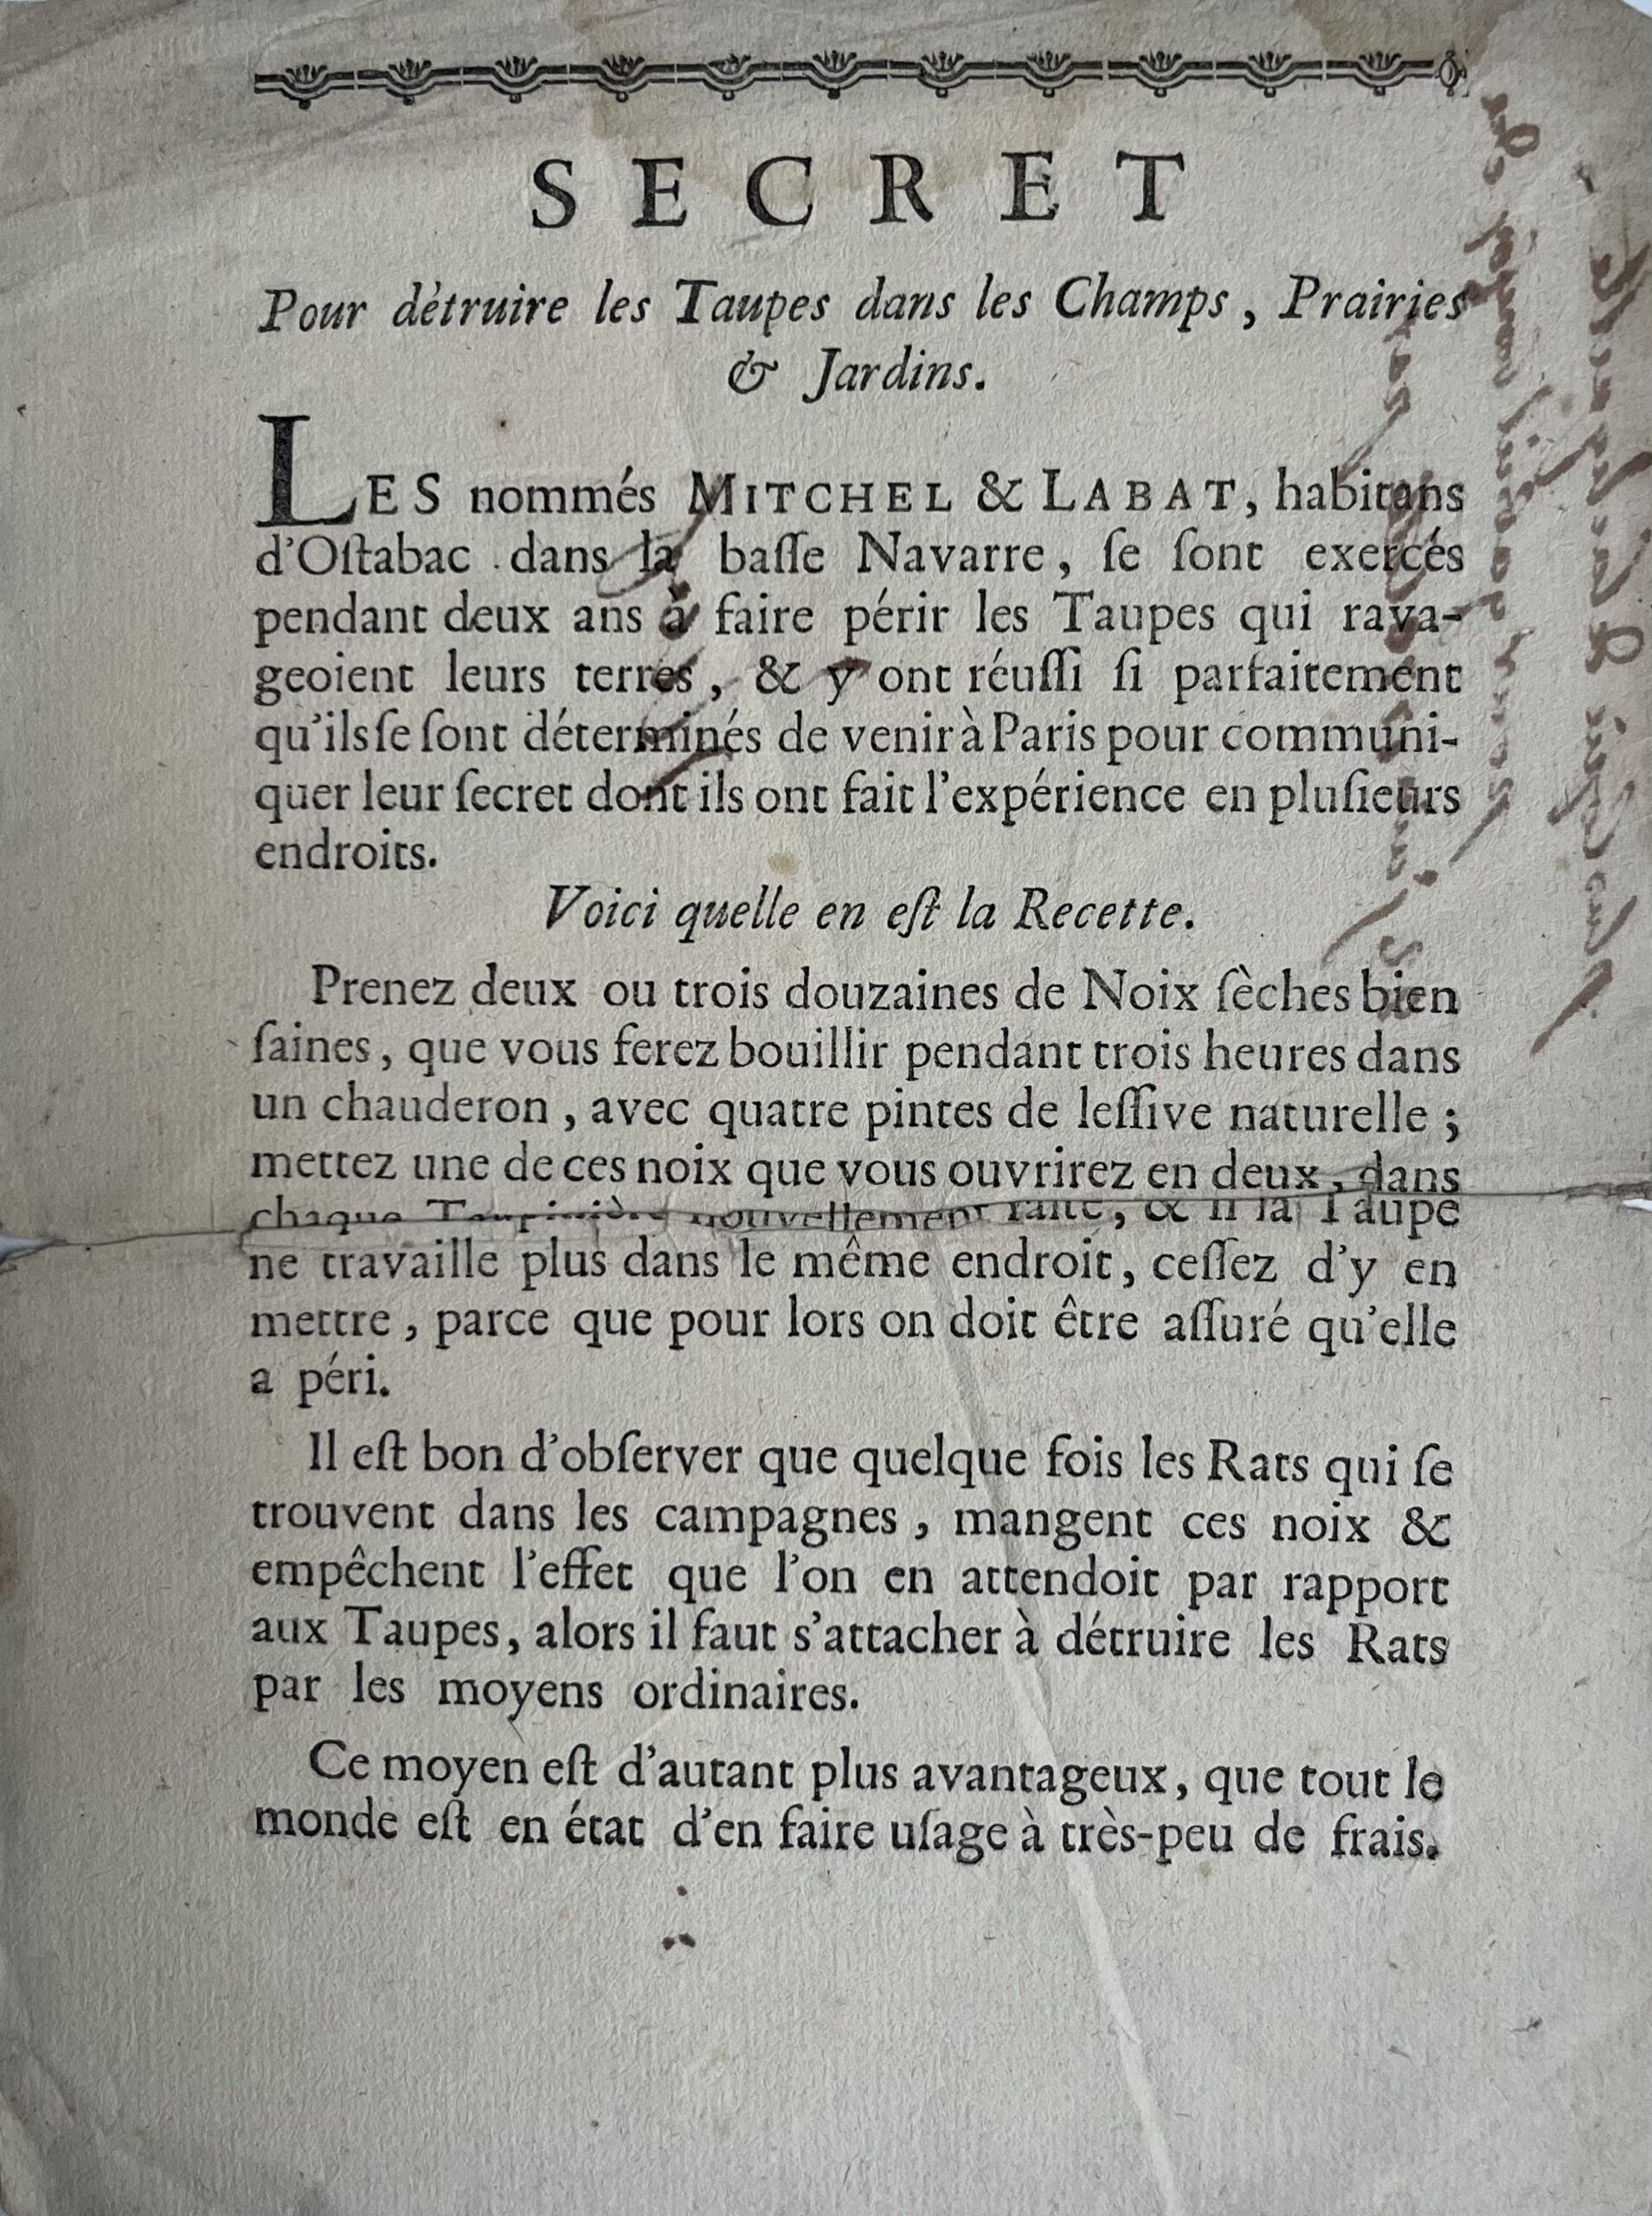 SECRET
Pour détruire les Taupes dans les Champs, Prairies
& Jardins.
LES nommés MITCHEL & LABAT, habitans
d'Oſtabac dans la baſſe Navarre, ſe ſont exercés
pendant deux ans à faire périr les Taupes qui rava-
geoient leurs terres, & y ont réuſſi ſi parfaitement
qu'ils ſe ſont déterminés de venir à Paris pour communi-
quer leur ſecret dont ils ont fait l'expérience en pluſieurs
endroits.
Voici quelle en eſt la Recette.
Prenez deux ou trois douzaines de Noix ſèches bien
ſaines, que vous ferez bouillir pendant trois heures dans
un chauderon, avec quatre pintes de leſſive naturelle;
mettez une de ces noix que vous ouvrirez en deux, dans
chaque Taupinière nouvellement faite, & ſi la Taupe
ne travaille plus dans le même endroit, ceſſez d'y en
mettre, parce que pour lors on doit être aſſuré qu'elle
a péri.
Il eſt bon d'obſerver que quelque fois les Rats qui ſe
trouvent dans les campagnes, mangent ces noix &
empêchent l'effet que l'on en attendoit par rapport
aux Taupes, alors il faut s'attacher à détruire les Rats
par les moyens ordinaires.
Ce moyen eſt d'autant plus avantageux, que tout le
monde eſt en état d'en faire uſage à très-peu de frais.